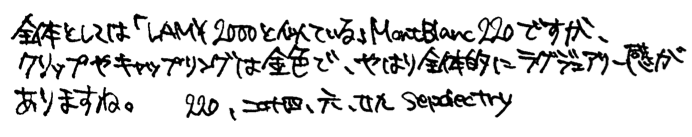 全体としては「LAMY 2000と似ている」MontBlanc 220ですが、
クリップやキャップリングは金色で、やはり全体的にラグジュアリー感が
ありますね。 220、